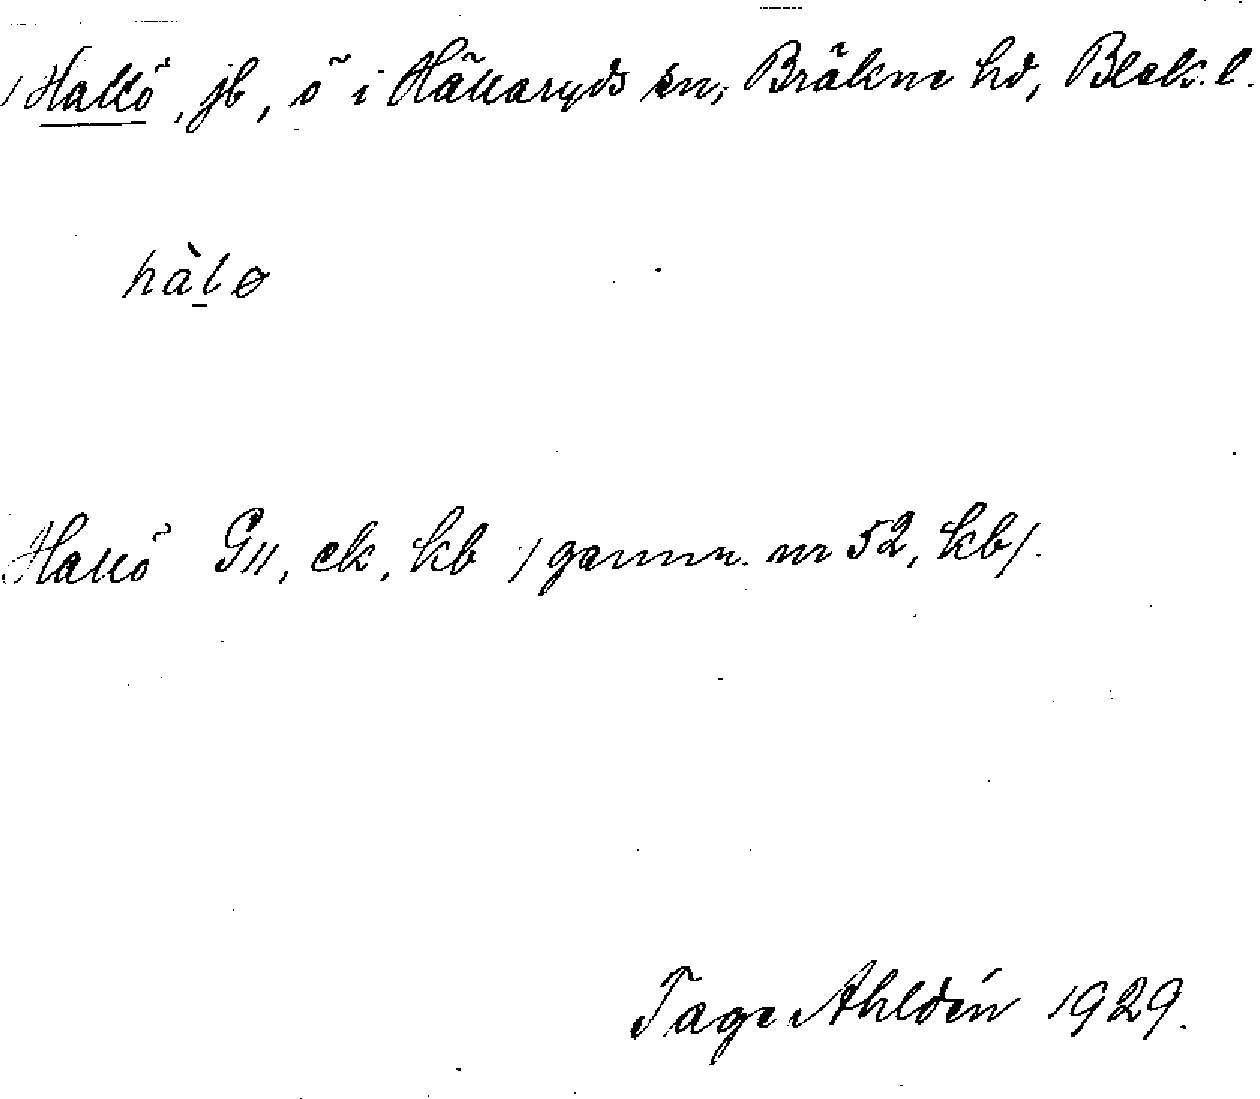 Hallö, jb, ö i Hällaryds sn, Bräkne hd, Blek. l.
hàlø
Hallö GK, ek, kb / gamm. nr 52, kb/.
Tage Ahldén 1929.